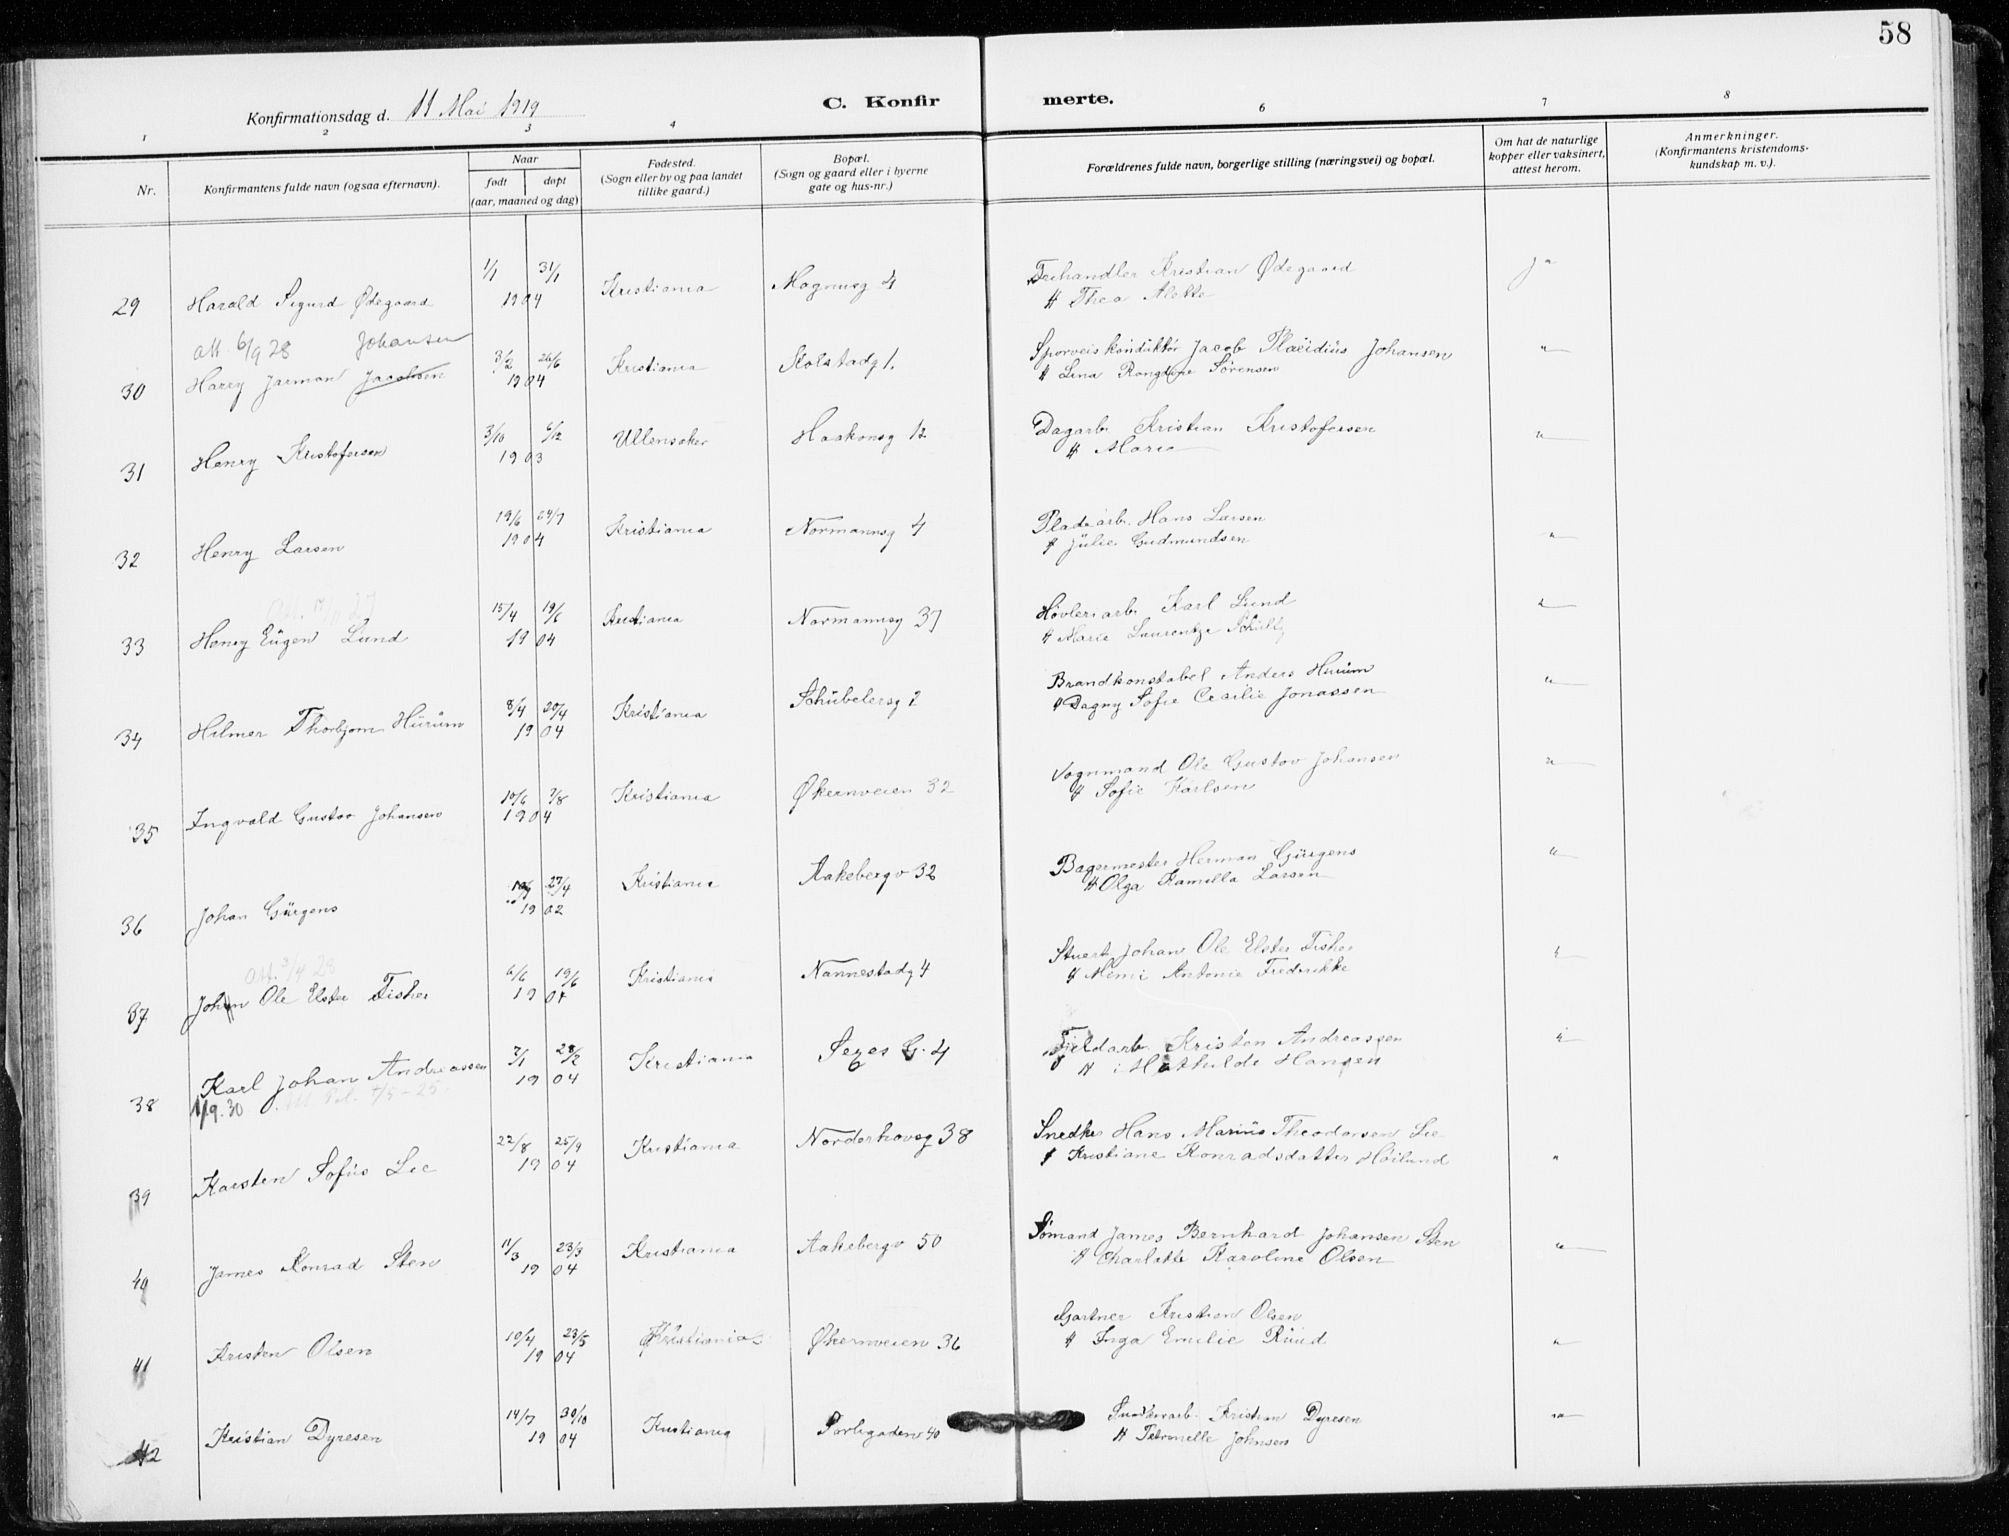 58
Konfirmationsdag d. 11 Mai 1919
C. Konfir merte.
1 2 3 4 6 7 8
Nr.
Konfirmantens fulde navn (ogsaa efternavn).
Naar
født døpt
(aar, maaned og dag)
Fødested.
(Sogn eller by og paa landet
tillike gaard.)
Bopæl.
(Sogn og gaard eller i byerne
gate og hus-nr.)
Forældrenes fulde navn, borgerlige stilling (næringsvei) og bopæl.
Om hat de naturlige
kopper eller vaksinert,
attest herom.
Anmerkninger.
(Konfirmantens kristendoms-
kundskap m. v.).
29 Harald Sigurd Ødegaard 1/1 31/1 1904 Kristiania Magnusg 4 Kristian Ødegaard ja
H Thea Alette
Att. 6/9 28 Johansen
30 Harry Jarman Jacobsen 3/2 26/6 1904 Kristiania Kolstadg 1. Sporveiskonduktør Jacob Placidius Johansen "
H Lina Sørensen
31 Henry Kristofersen 3/10 6/12 1903 Ullensaker Haakonsg 12 Dagarb. Kristian Kristofersen "
H Marie
32 Henry Larsen 19/6 24/7 1904 Kristiania Normannsg 4 Pladearb. Hans Larsen "
H Julie Gudmundsen
Att. 17/11 27
33 Henry Eugen Lund 15/4 19/6 1904 Kristiania Normannsg 37 Høvleriarb Karl Lund "
H Marie
34 Hilmer Thorbjørn Hurum 8/4 20/4 1904 Kristiania Schübelersg 2 Brandkonstabel Anders Hurum "
H Dagny Sofie Cecilie Jonassen
35 Ingvald Gustav Johansen 10/6 7/8 1904 Kristiania Økernveien 32 Vognmand Ole Gustav Johansen "
H Sofie Karlsen
36 Johan Gürgens 27/4 1902 Kristiania Aakebergv 32 Bagermester Herman Gürgens "
H Olga Kamilla Larsen
Att. 3/4 28
37 Johan Ole Elster Fisher 6/6 19/6 1904 Kristiania Nannestadg 4 Stuert Johan Ole Elster Fisher "
H Mimi Antonie Frederikke
38 Karl Johan Andreassen 7/1 28/2 1904 Kristiania Seges G. 4 Fjeldarb Kristen Andreassen "
H Mathilde Hansen
1/9.30 Att Pol. 7/5-25
39 Karsten Sofus Lie 22/8 25/9 1904 Kristiania Norderhovsg 38 Snedker Hans Marius Theodorsen Lie "
H Kristiane Konradsdatter Høilund
40 James Konrad Sten 11/3 23/3 1904 Kristiania Aakebergv 50 Sømand James Bernhard Johansen Sten "
H Charlotte Karoline Olsen
41 Kristen Olsen 10/4 23/5 1904 Kristiania Økernveien 36 Gartner Kristian Olsen "
H Inga Emilie Ruud
42 Kristian Dyresen 14/7 30/10 1904 Kristiania 40 Kristian Dyresen "
H Petronelle Johnsen